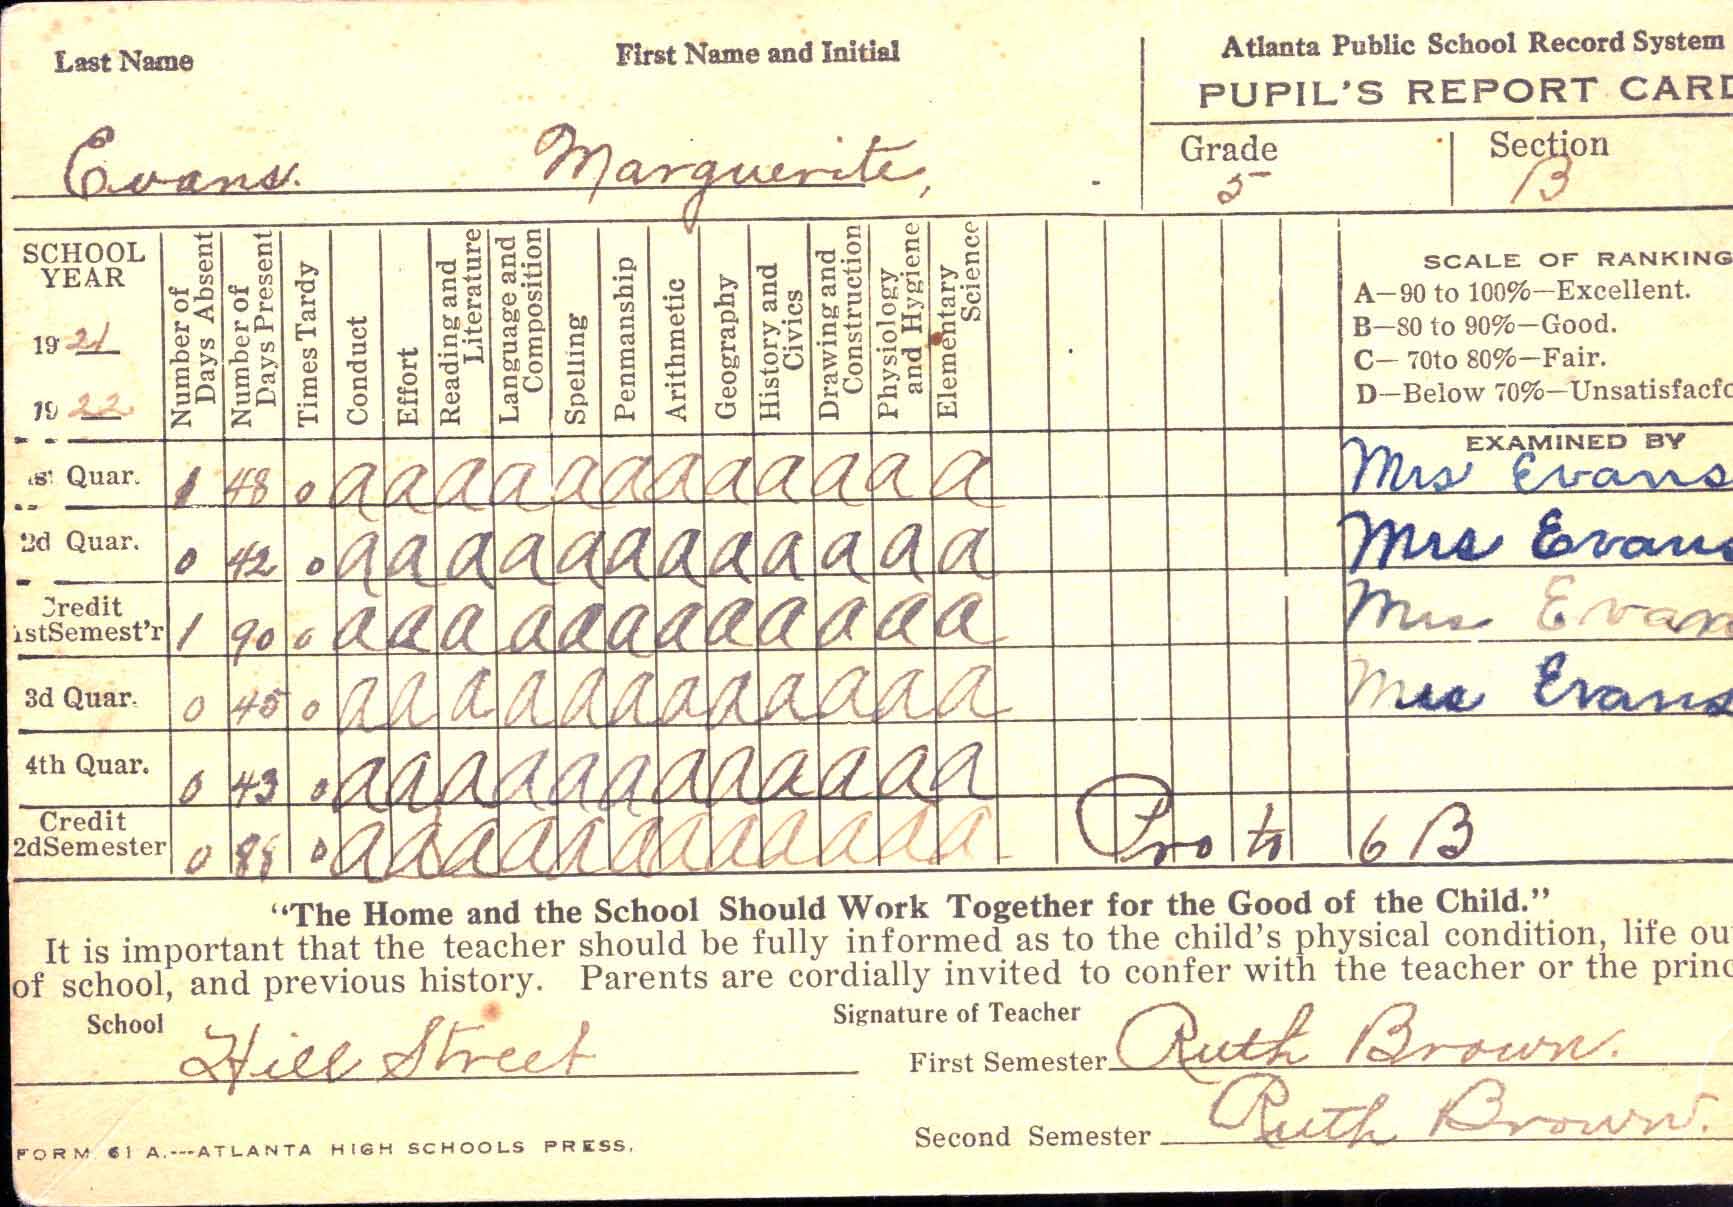 Last Name First Name and Initial Atlanta Public School Record System
PUPIL'S REPORT CARD
Evans. Marguerite,
Grade Section
5 B
SCHOOL YEAR
1921
1922
Number of Days Absent
Number of Days Present
Times Tardy
Conduct
Effort
Reading and Literature
Language and Composition
Spelling
Penmanship
Arithmetic
Geography
History and Civics
Drawing and Construction
Physiology and Hygiene
Elementary Science
SCALE OF RANKING
A—90 to 100%—Excellent.
B—80 to 90%—Good.
C—70to 80%—Fair.
D—Below 70%—Unsatisfacto
EXAMINED BY
1st Quar. 1 48 0 a a a a a a a a a a a a Mrs Evans
2d Quar. 0 42 0 a a a a a a a a a a a a Mrs Evans
Credit 1stSemest'r 1 90 0 a a a a a a a a a a a a Mrs Evans
3d Quar. 0 45 0 a a a a a a a a a a a a Mrs Evans
4th Quar. 0 43 0 a a a a a a a a a a a a
Credit 2dSemester 0 88 0 a a a a a a a a a a a a Pro to 6 B
"The Home and the School Should Work Together for the Good of the Child."
It is important that the teacher should be fully informed as to the child's physical condition, life ou
of school, and previous history. Parents are cordially invited to confer with the teacher or the princ
School Signature of Teacher
Hill Street First Semester Ruth Brown.
Second Semester Ruth Brown.
FORM 61 A.---ATLANTA HIGH SCHOOLS PRESS.